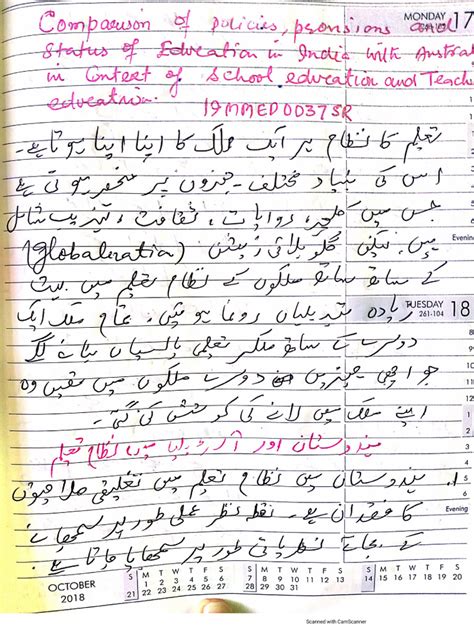 Comparison of policies, provisions and
Status of Education in India with Austral
in Context of School education and Teach
education.
19MMED0037SR
MONDAY 17
تعلیم کا نظام ہر ایک ملک کا اپنا اپنا ہوتا ہے۔
اس کی بنیاد مختلف چیزوں پر منحصر ہوتی ہے
جس میں کلچر، روایات، ثقافت، تہذیب شامل
ہیں۔ لیکن گلوبلائزیشن (Globalization)
Evening
کے ساتھ ساتھ ملکوں کے نظام تعلیم میں بہت
زیادہ تبدیلیاں رونما ہوئیں۔ تمام ملک ایک
TUESDAY 18
261-104
دوسرے کے ساتھ ملکر تعلیمی پالسیاں بنانے لگے
جو اچھی چیزیں دوسرے ملکوں میں تھیں وہ
اپنے ملک میں لانے کی کوشش کی گئی۔
ہندوستان اور آسٹریلیا میں نظام تعلیم
1. ہندوستان میں نظام تعلیم میں تخلیقی صلاحیتوں
کا فقدان ہے۔ نقطہ نظر عملی طور پر سمجھانے
Evening
کے بجائے نظریاتی طور پر سمجھایا جاتا ہے۔
OCTOBER
2018
S M T W T F S S M T W T F S S M T W T F S
1 2 3 4 5 6 7 8 9 10 11 12 13 14 15 16 17 18 19 20
21 22 23 24 25 26 27 28 29 30 31
Scanned with CamScanner